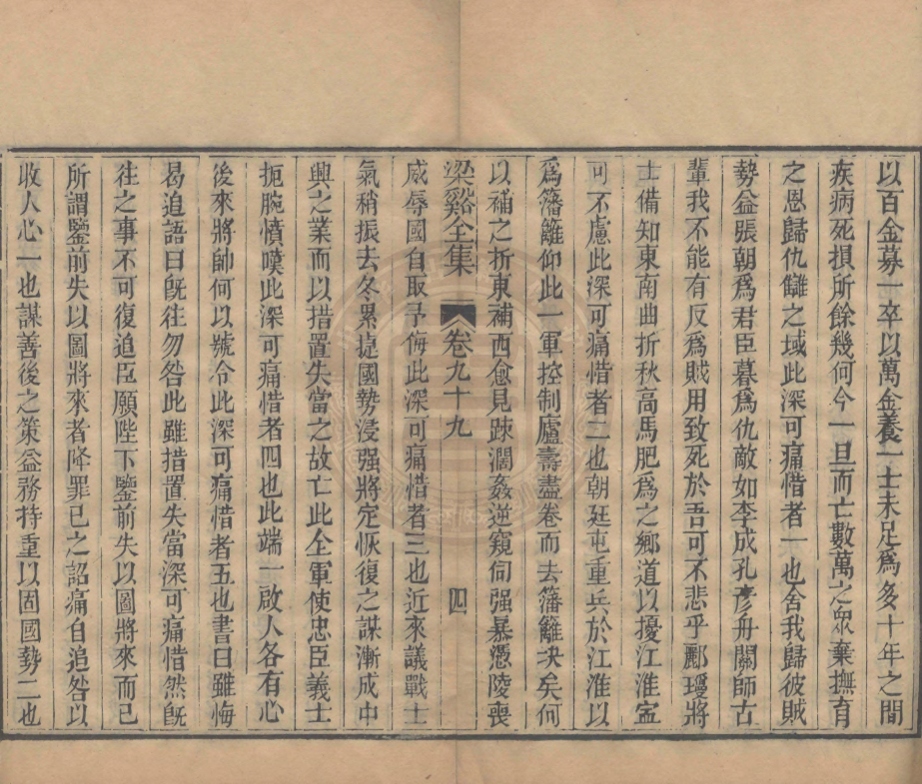 以百金募一卒以萬金養一士未足爲多十年之間
疾病死損所餘幾何今一旦而亡數萬之眾棄撫育
之恩歸仇讎之域此深可痛惜者一也舍我歸彼賊
勢益張朝爲君臣暮爲仇敵如李成孔彥舟關師古
輩我不能有反爲賊用致死於吾可不悲乎酈瓊將
士備知東南曲折秋高馬肥爲之鄉道以擾江淮寍
可不慮此深可痛惜者二也朝廷屯重兵於江淮以
爲藩籬仰此一軍控制廬壽盡卷而去藩籬决矣何
以補之折東補西愈見踈濶姦逆窺伺强暴憑陵喪
梁谿全集 卷九十九 四
威辱國自取予侮此深可痛惜者三也近來議戰士
氣稍振去冬累㨗國勢浸强將定恢復之謀漸成中
興之業而以措置失當之故亡此全軍使忠臣義士
扼腕憤嘆此深可痛惜者四也此端一啟人各有心
後來將帥何以號令此深可痛惜者五也書曰雖悔
曷追語曰旣往勿咎此雖措置失當深可痛惜然旣
往之事不可復追臣願陛下鑒前失以圖將來而已
所謂鑒前失以圖將來者降罪已之詔痛自追咎以
收人心一也謀善後之策益務持重以固國勢二也